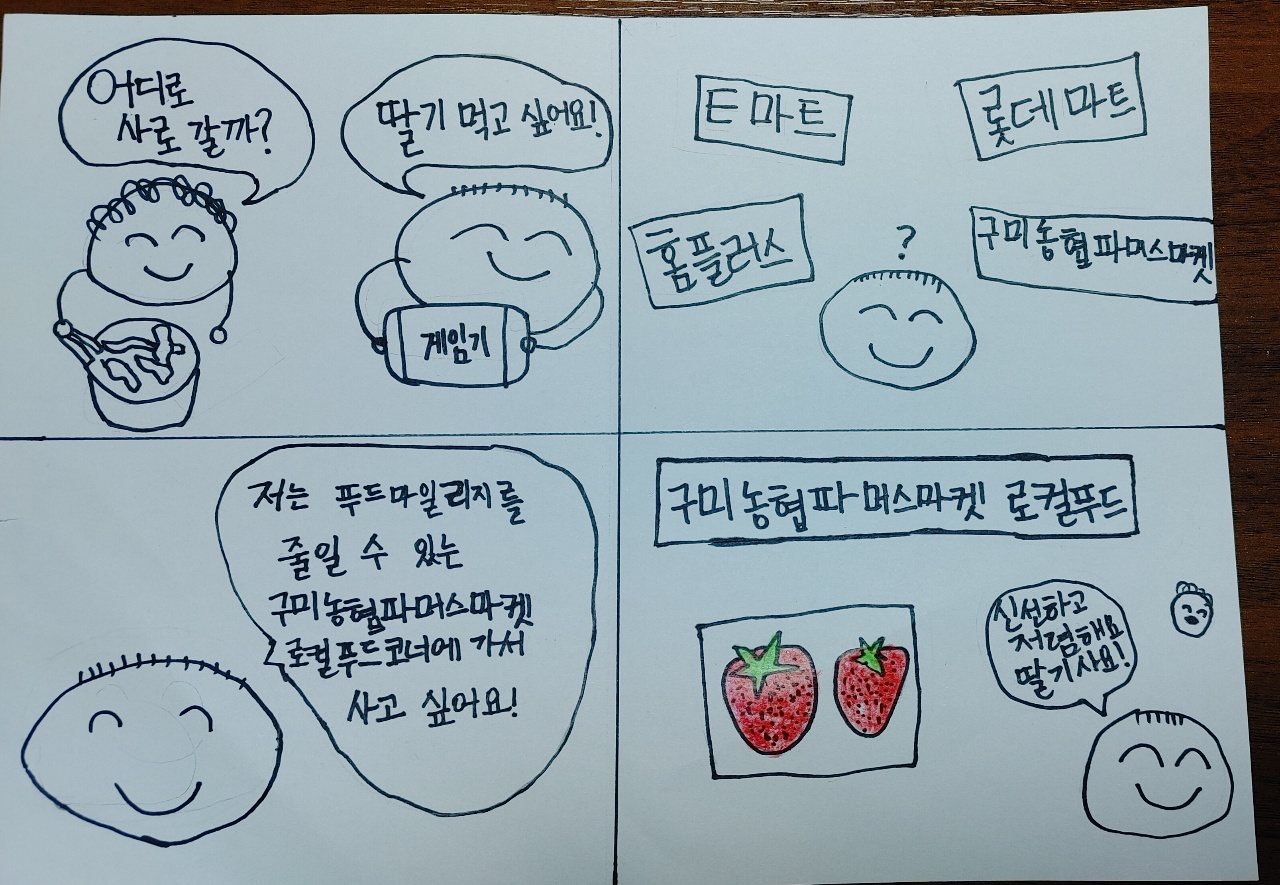 어디로
사로 갈까?
딸기 먹고 싶어요!
게임기
E 마트
롯데마트
홈플러스
?
구미농협파머스마켓
저는 푸드마일리지를
줄일 수 있는
구미농협파머스마켓
로컬푸드코너에 가서
사고 싶어요!
구미농협파머스마켓 로컬푸드
신선하고
저렴해요
딸기사요!